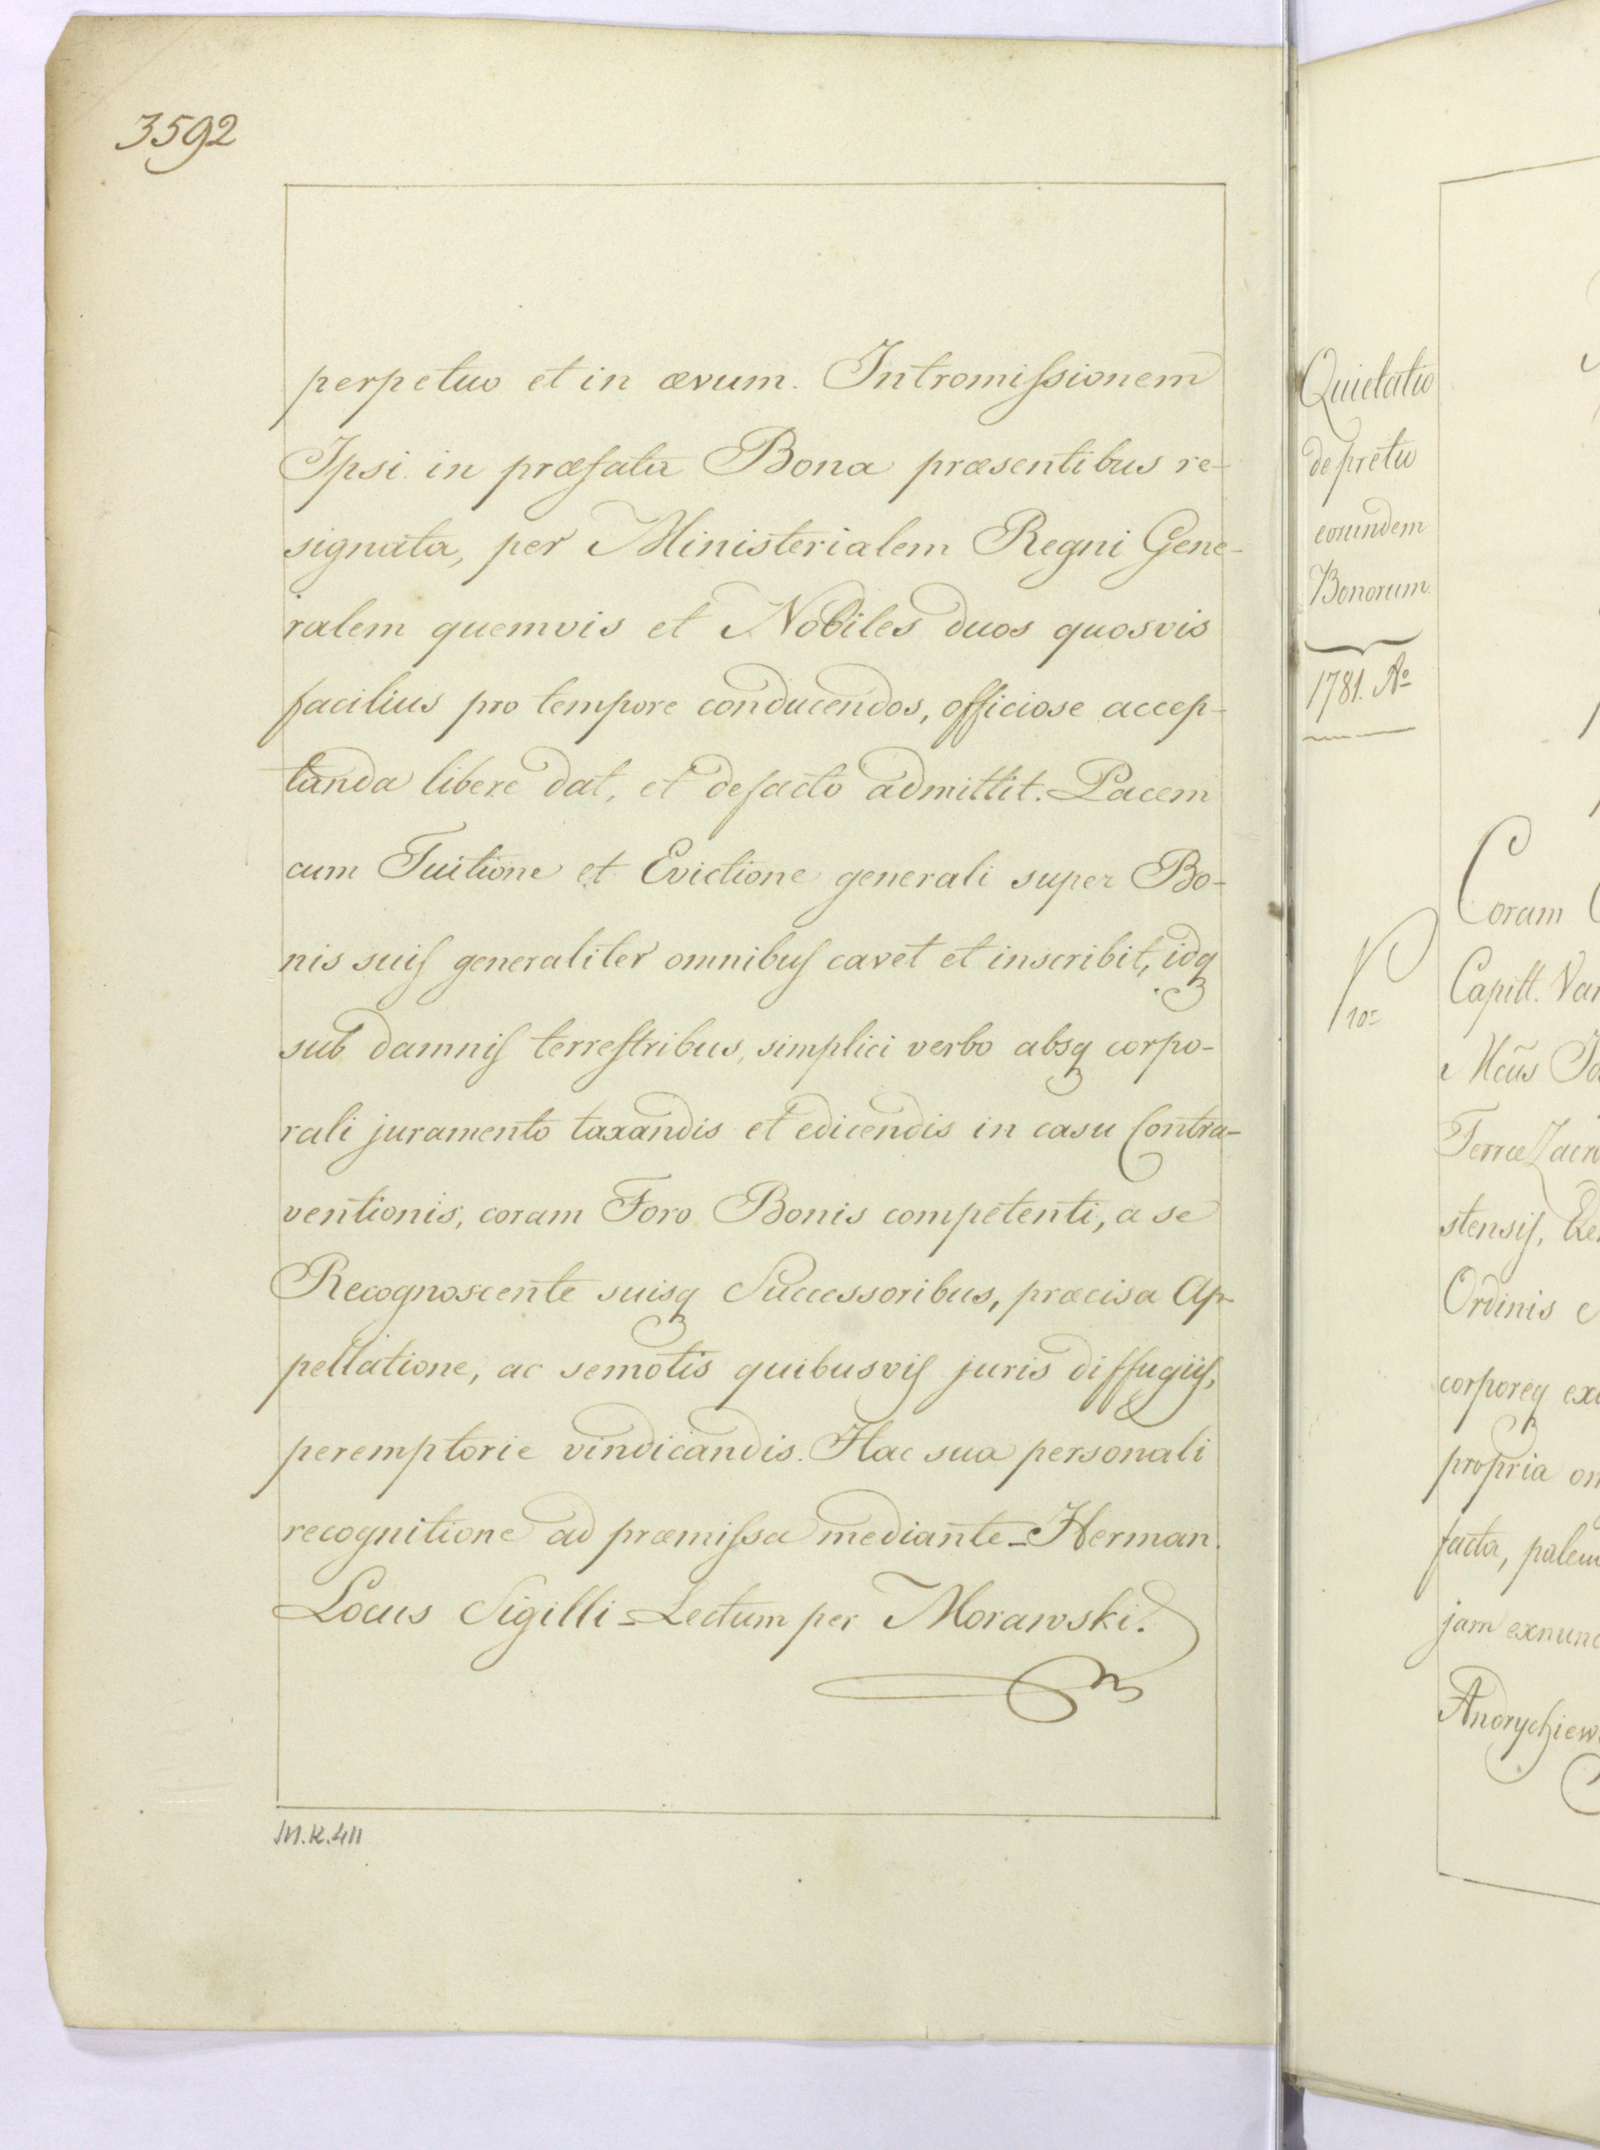 3592
perpetuo et in ævum. Intromissionem
Ipsi in præfata Bona præsentibus re-
signata, per Ministerialem Regni Gene-
ralem quemvis et Nobiles duos quosvis
facilius pro tempore conducendos, officiose accep-
tanda libere dat, et defacto admittit. Pacem
cum Tuitione et Evictione generali super Bo-
nis suis generaliter omnibus cavet et inscribit, idq
sub damnis terrestribus, simplici verbo absq corpo-
rali juramento taxandis et edicendis in casu Contra-
ventionis, coram Foro Bonis competenti, a se
Recognoscente suisq Successoribus, præcisa Ap-
pellatione, ac semotis quibusvis juris diffugiis,
peremptorie vindicandis. Hac sua personali
recognitione ad præmissa mediante = Herman.
Locus Sigilli = Lectum per Morawski.
M.K.411
Quietatio
de pretio
eorundem
Bonorum
1781. Ao
Coram
Capitt. Var
Mcus Jo
Terræ Zacr
stensis,
Ordinis
corporeq ex
propria om
facta, palem
jam exnunc
Andrychiew